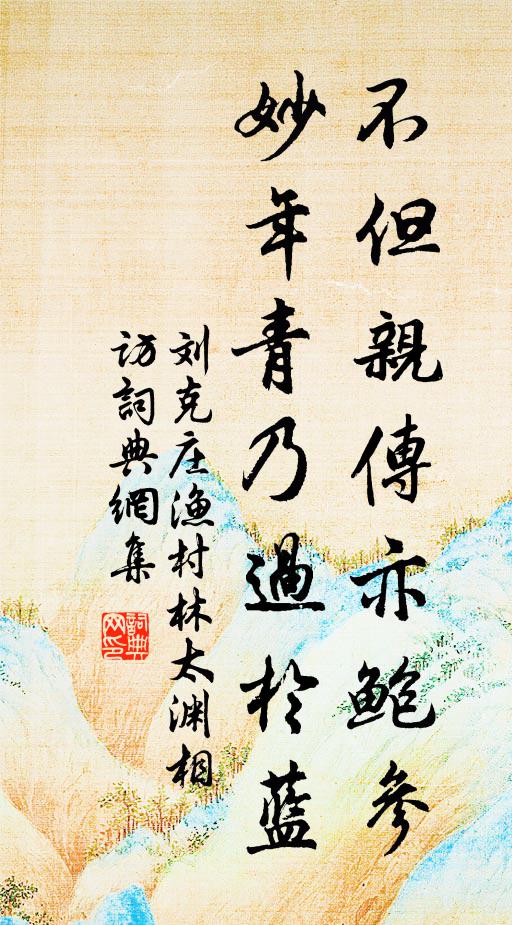 不但親傳亦鲍參
妙年青乃過於藍
刘克庄渔村林太渊相
访詞典網集
詞典
网印